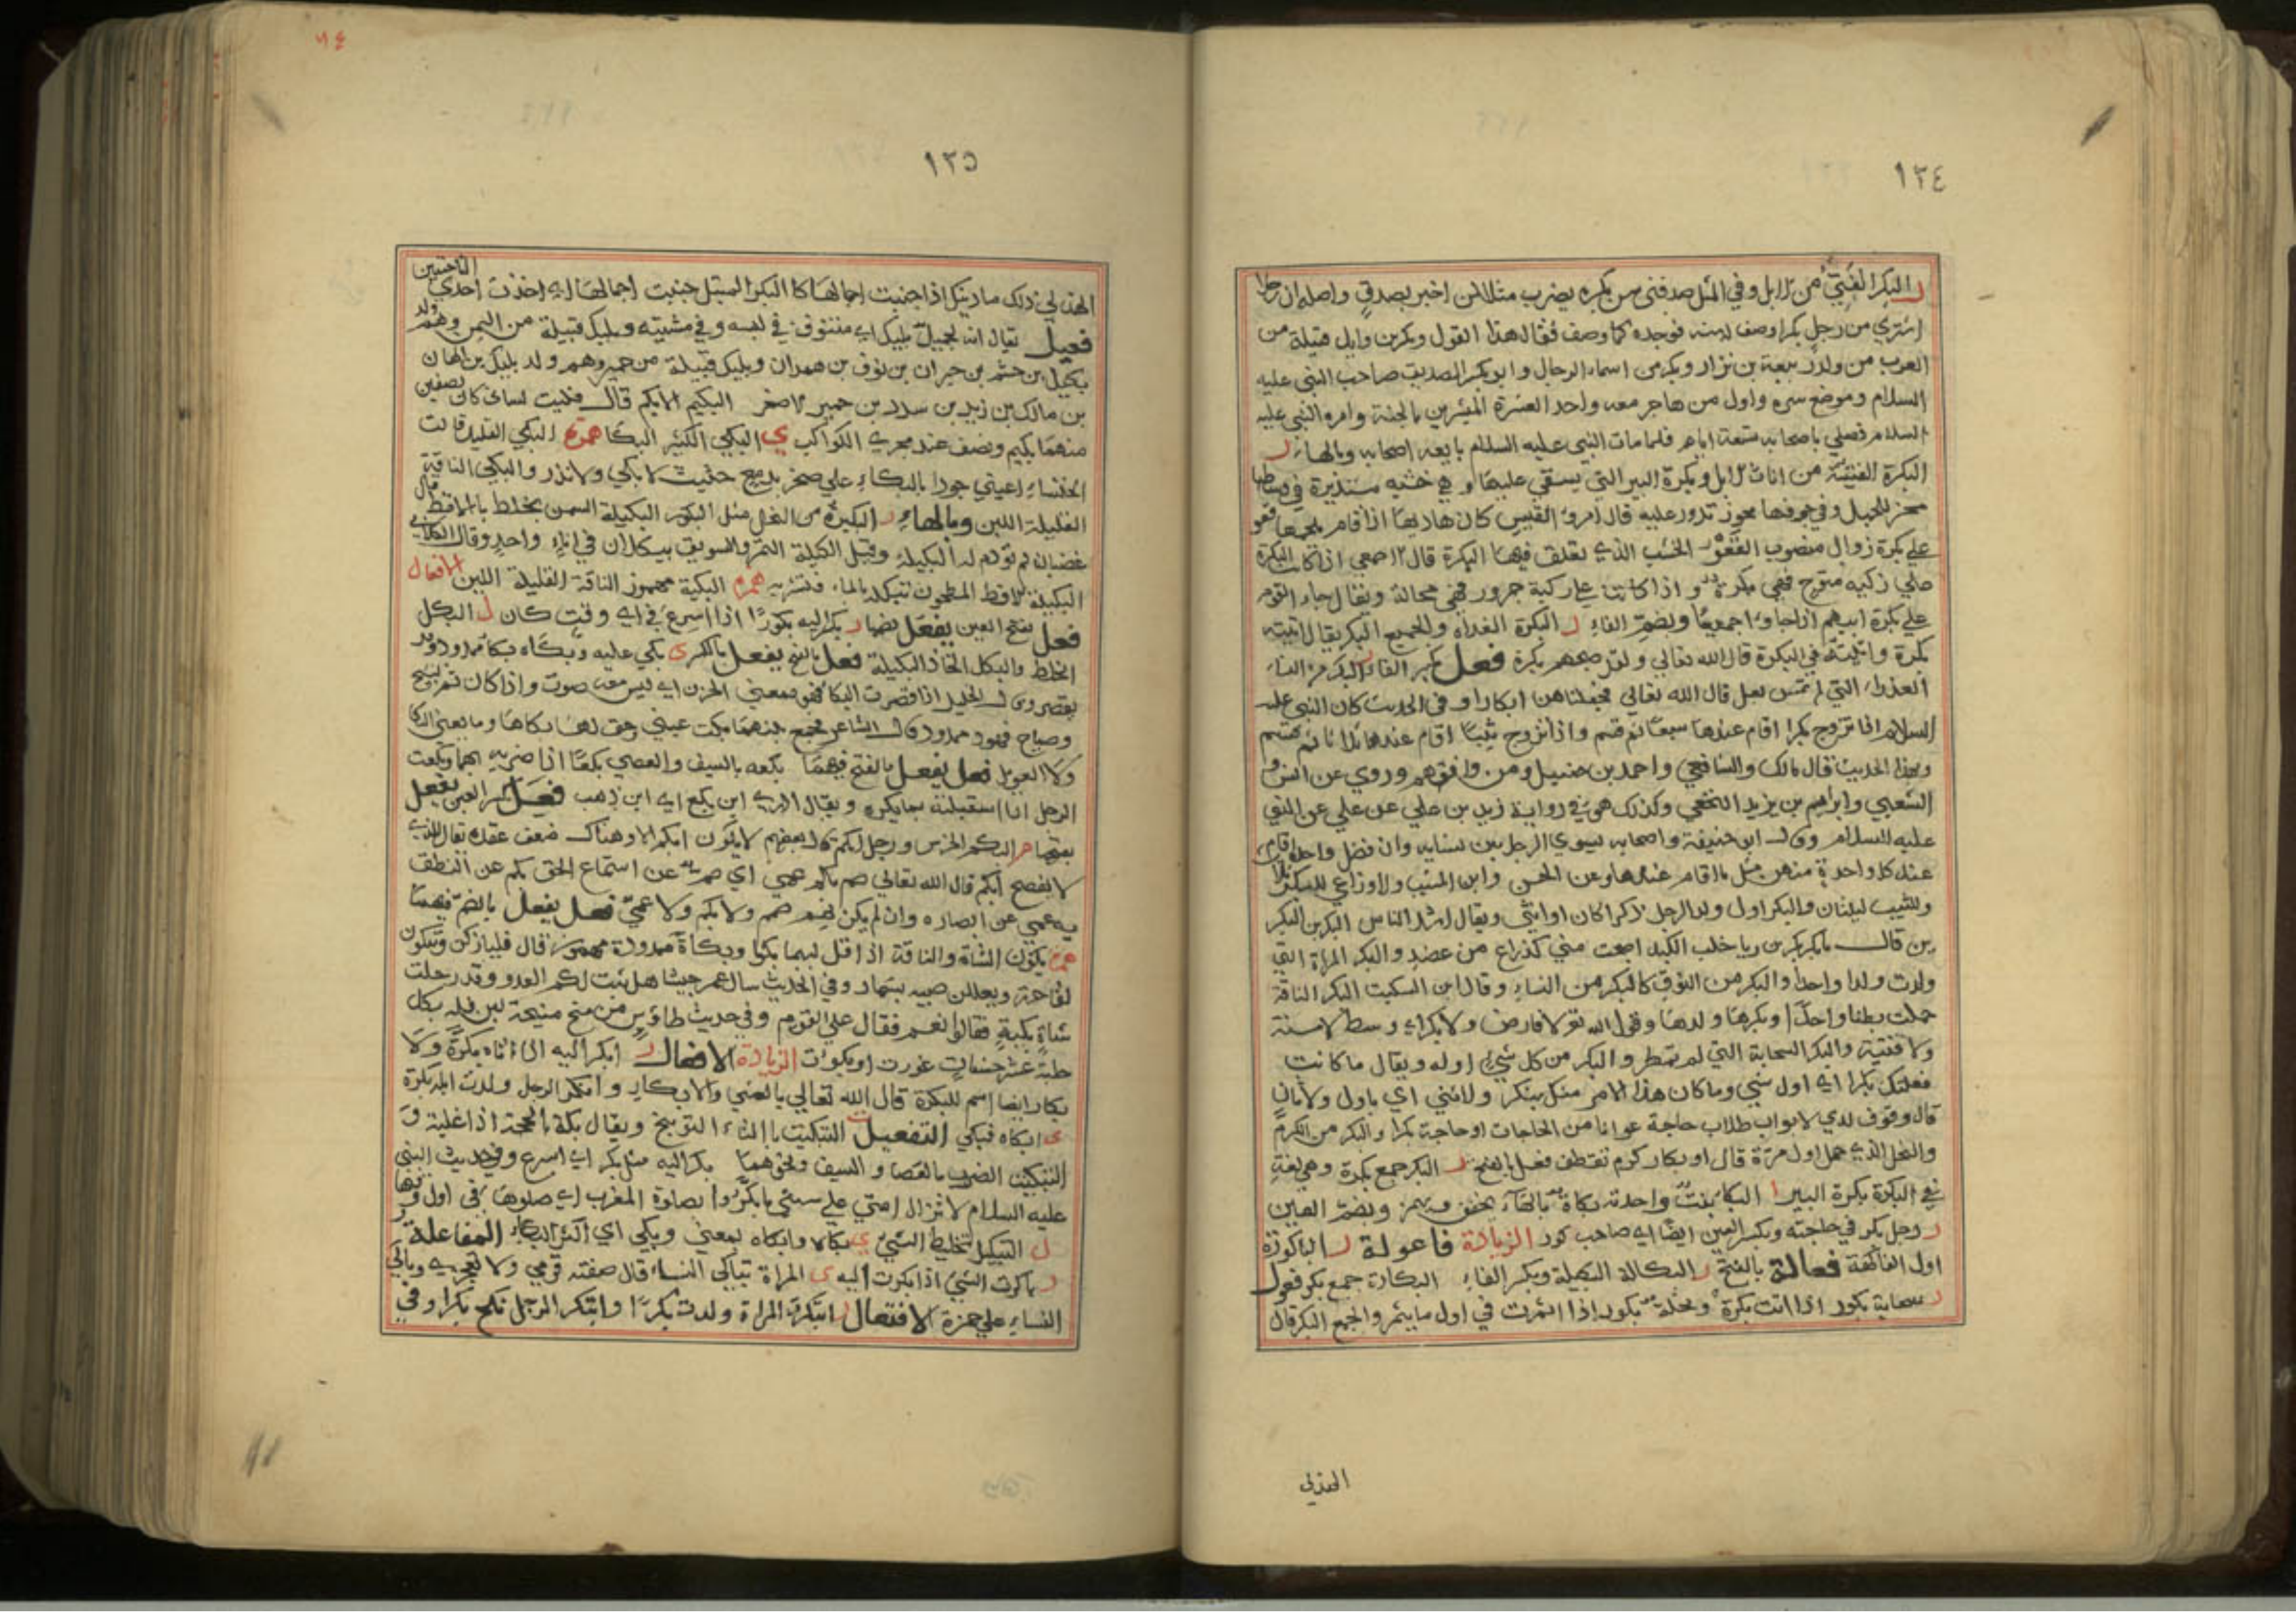 ١٣٤
ر البكر الفتيّ من الابل وفي المثل صدقني سن بكره يضرب مثلا لمن اخبر بصدق واصله ان رجلا
اشتري من رجل بكرا وصف له سنه فوجده كما وصف فقال هذا القول وبكر بن وايل قبيلة من
العرب من ولد ربيعة بن نزار وبكر من اسماء الرجال وابو بكر الصديق صاحب النبي عليه
السلام وموضع سره واول من هاجر معه واحد العشرة المبشرين بالجنة وامره النبي عليه
السلام فصلي باصحابه ستة ايام فلما مات النبي عليه السلام بايعه اصحابه وبالهاء ر
البكرة الفتيّة من اناث الابل وبكرة البير التي يستقي عليها وهي خشبة مستديرة في وسطها
محز للحبل وفي جوفها محور تدور عليه قال امرؤ القيس كان هاديها اذ اقام ملجمها قعو
علي بكرة زوراء منصوب القعو الخشب الذي تعلق فيها البكرة قال الاصمعي اذا كانت البكرة
علي ركية متوح فهي بكرة واذا كانت علي ركية جرور فهي محالة ويقال جاء القوم
علي بكرة ابيهم اذا جاوا اجمعوا وبضم الفاء ر البكرة الغداة والجميع البكر يقال اتيته
بكرة واتيته في البكرة قال الله تعالي ولقد صبحهم بكرة فعل بكسر الفاء ر البكر من النساء
العذراء التي لم تمس بعل قال الله تعالي فجعلناهن ابكارا و في الحديث كان النبي عليه
السلام اذا تزوج بكرا اقام عندها سبعا ثم قسم واذا تزوج ثيبا اقام عندها ثلاثا ثم قسم
وبهذا الحديث قال مالك والشافعي واحمد بن حنبل ومن وافقهم وروي عن انس و
الشعبي وابراهيم بن يزيد النخعي وكذلك هو في رواية زيد بن علي عن علي عن النبي
عليه السلام وقال ابو حنيفة واصحابه يسوي الرجل بين نسايه وان فضل واحدة اقام
عند كل واحدة منهن مثل ما اقام عندها وعن الحسن وابن المسيب والاوزاعي للبكر ثلاث
وللثيب ليلتان والبكر اول ولد الرجل ذكرا كان او انثي ويقال اشد الناس البكر بن البكر
ين قال يا بكر بكرين ويا خلب الكبد اصبحت مني كذراع من عضد والبكر المراة التي
ولدت ولدا واحدا والبكر من النوق كالبكر من النساء وقال ابن السكيت البكر الناقة
حملت بطنا واحدا وبكرها ولدها وقول الله تع لا فارض ولا بكر اي وسط لا مسنة
ولا فتية والبكر السحابة التي لم تمطر والبكر من كل شي اوله ويقال ما كانت
فعلتك بكرا اي اول شي وما كان هذا الامر منك ببكر ولا ثني اي باول ولا بثان
قال وقوف لدي الابواب طلاب حاجة عوانا من الحاجات او حاجة بكرا والبكر من الكرم
والنخل الذي حمل اول مرة قال او بكار كرم تقطف فعل بالفتح ر البكر جمع بكرة وهي لغة
في البكرة بكرة البير ا البكا نبت واحدته بكاة بالهاء يخفف ويهمز وبضم العين
ر رجل بكر في حاجته وبكسر العين ايضا اي صاحب بكور الزيادة فاعولة ر الباكورة
اول الفاكهة فعالة بالفتح ل البكالة البكيلة وبكسر الفاء البكارة جمع بكر فعول
ر سحابة بكور اذا اتت بكرة ونخلة بكور اذا اثمرت في اول ما يثمر والجمع البكر قال
الهذلي
١٣٥
الهذلي ذلك ما دينك اذ اجنبت اجمالها كا البكر المبتل جنبت اجمالها اي اخذت احدي الناحيتين
فعيل يقال انه لجميل بكيل اي متنوق في لبسه وفي مشيته وبكيل قبيلة من اليمن وهم ولد
بكيل بن جشم بن خيران بن نوف بن همدان وبكيل قبيلة من حمير وهم ولد بكيل بن الهان
بن مالك بن زيد بن سدد بن حمير الاصغر البكيم الابكم قال فليت لساني كان نصفين
منهما بكيم ونصف عند مجري الكواكب ي البكي الكثير البكا همزة البكي القليل قالت
الخنساء اعيني جودا بالبكاء علي صخر بدمع حثيث لا بكي ولا نذر والبكي الناقة
القليلة اللبن وبالهاء ر البكيرة من النخل مثل البكور البكيلة السمن يخلط بالاقط قال
غضبان لم تودم له البكيلة وقيل البكيلة التمر والسويق يبكلان في اناء واحد وقال الكلابي
البكيلة الاقط المطحون تبكله بالماء فتثريه همزة البكية مهموز الناقة القليلة اللبن الافعال
فعل بفتح العين يفعل بضمها ر بكر اليه بكورا اذا اسرع في اي وقت كان ل البكل
الخلط والبكل اتخاذ البكيلة فعل بالفتح يفعل بالكسر ي بكي عليه وبكاه بكا ممدود وقد
يقصر وقال الخليل اذا قصرت البكا فهو بمعني الحزن اي ليس معه صوت واذا كان ثم نشيج
وصياح فهو ممدود قال الشاعر فجمع بينهما بكت عيني وحق لها بكاها وما يغني البكا
ولا العويل فعل يفعل بالفتح فيهما بكعه بالسيف والعصي بكعا اذا ضربه بهما وبكعت
الرجل اذا استقبلته بما يكره ويقال ما ادري اين بكع اي اين ذهب فعل بكسر العين يفعل
بفتحها م البكم الخرس ورجل ابكم قال بعضهم لا يكون ابكم الا وهناك ضعف عقل ويقال للذي
لا يفصح ابكم قال الله تعالي صم بكم عمي اي صم عن استماع الحق بكم عن النطق
به عمي عن ابصاره وان لم يكن بهم صمم ولا بكم ولا عمي فعل يفعل بالضم فيهما
همزة بكوت الشاة والناقة اذا اقل لبنها بكوا وبكاة ممدودة مهموز قال فليازلن وتبكون
لقاحه ويعللن صبيه بسمار وفي الحديث سال عمر جيشا هل ثبت لكم العدو وقدر حلب
شاة بكية فقالوا نعم فقال غل القوم وفي حديث طاوس من منح منيحة لبن فله بكل
حلبة عشر حسنات غزرت او بكوت الزيادة الافعال ر ابكر اليه اذا اتاه بكرة والا
بكار ايضا اسم للبكرة قال الله تعالي بالعشي والابكار وابكر الرجل وردت ابله بكرة
ي ابكاه فبكي التفعيل التبكيت بالتاء التوبيخ ويقال بكته بالحجة اذا غلبه و
التبكيت الضرب بالعصا والسيف ونحوهما بكر اليه مثل بكر اي اسرع وفي حديث النبي
عليه السلام لا تزال امتي علي سنتي ما بكروا بصلوة المغرب اي صلوها في اول وقتها
ل التبكيل تخليط الشي ي بكاه وابكاه بمعني وبكي اي اكثر البكاء المفاعلة
ر باكرت الشي اذا بكرت اليه ي المراة تباكي النساء قال صفته قومي ولا تعجزيه وباكي
النساء علي حمزة الافتعال ر ابتكرت المراة ولدت بكرا وابتكر الرجل نكح بكرا وفي